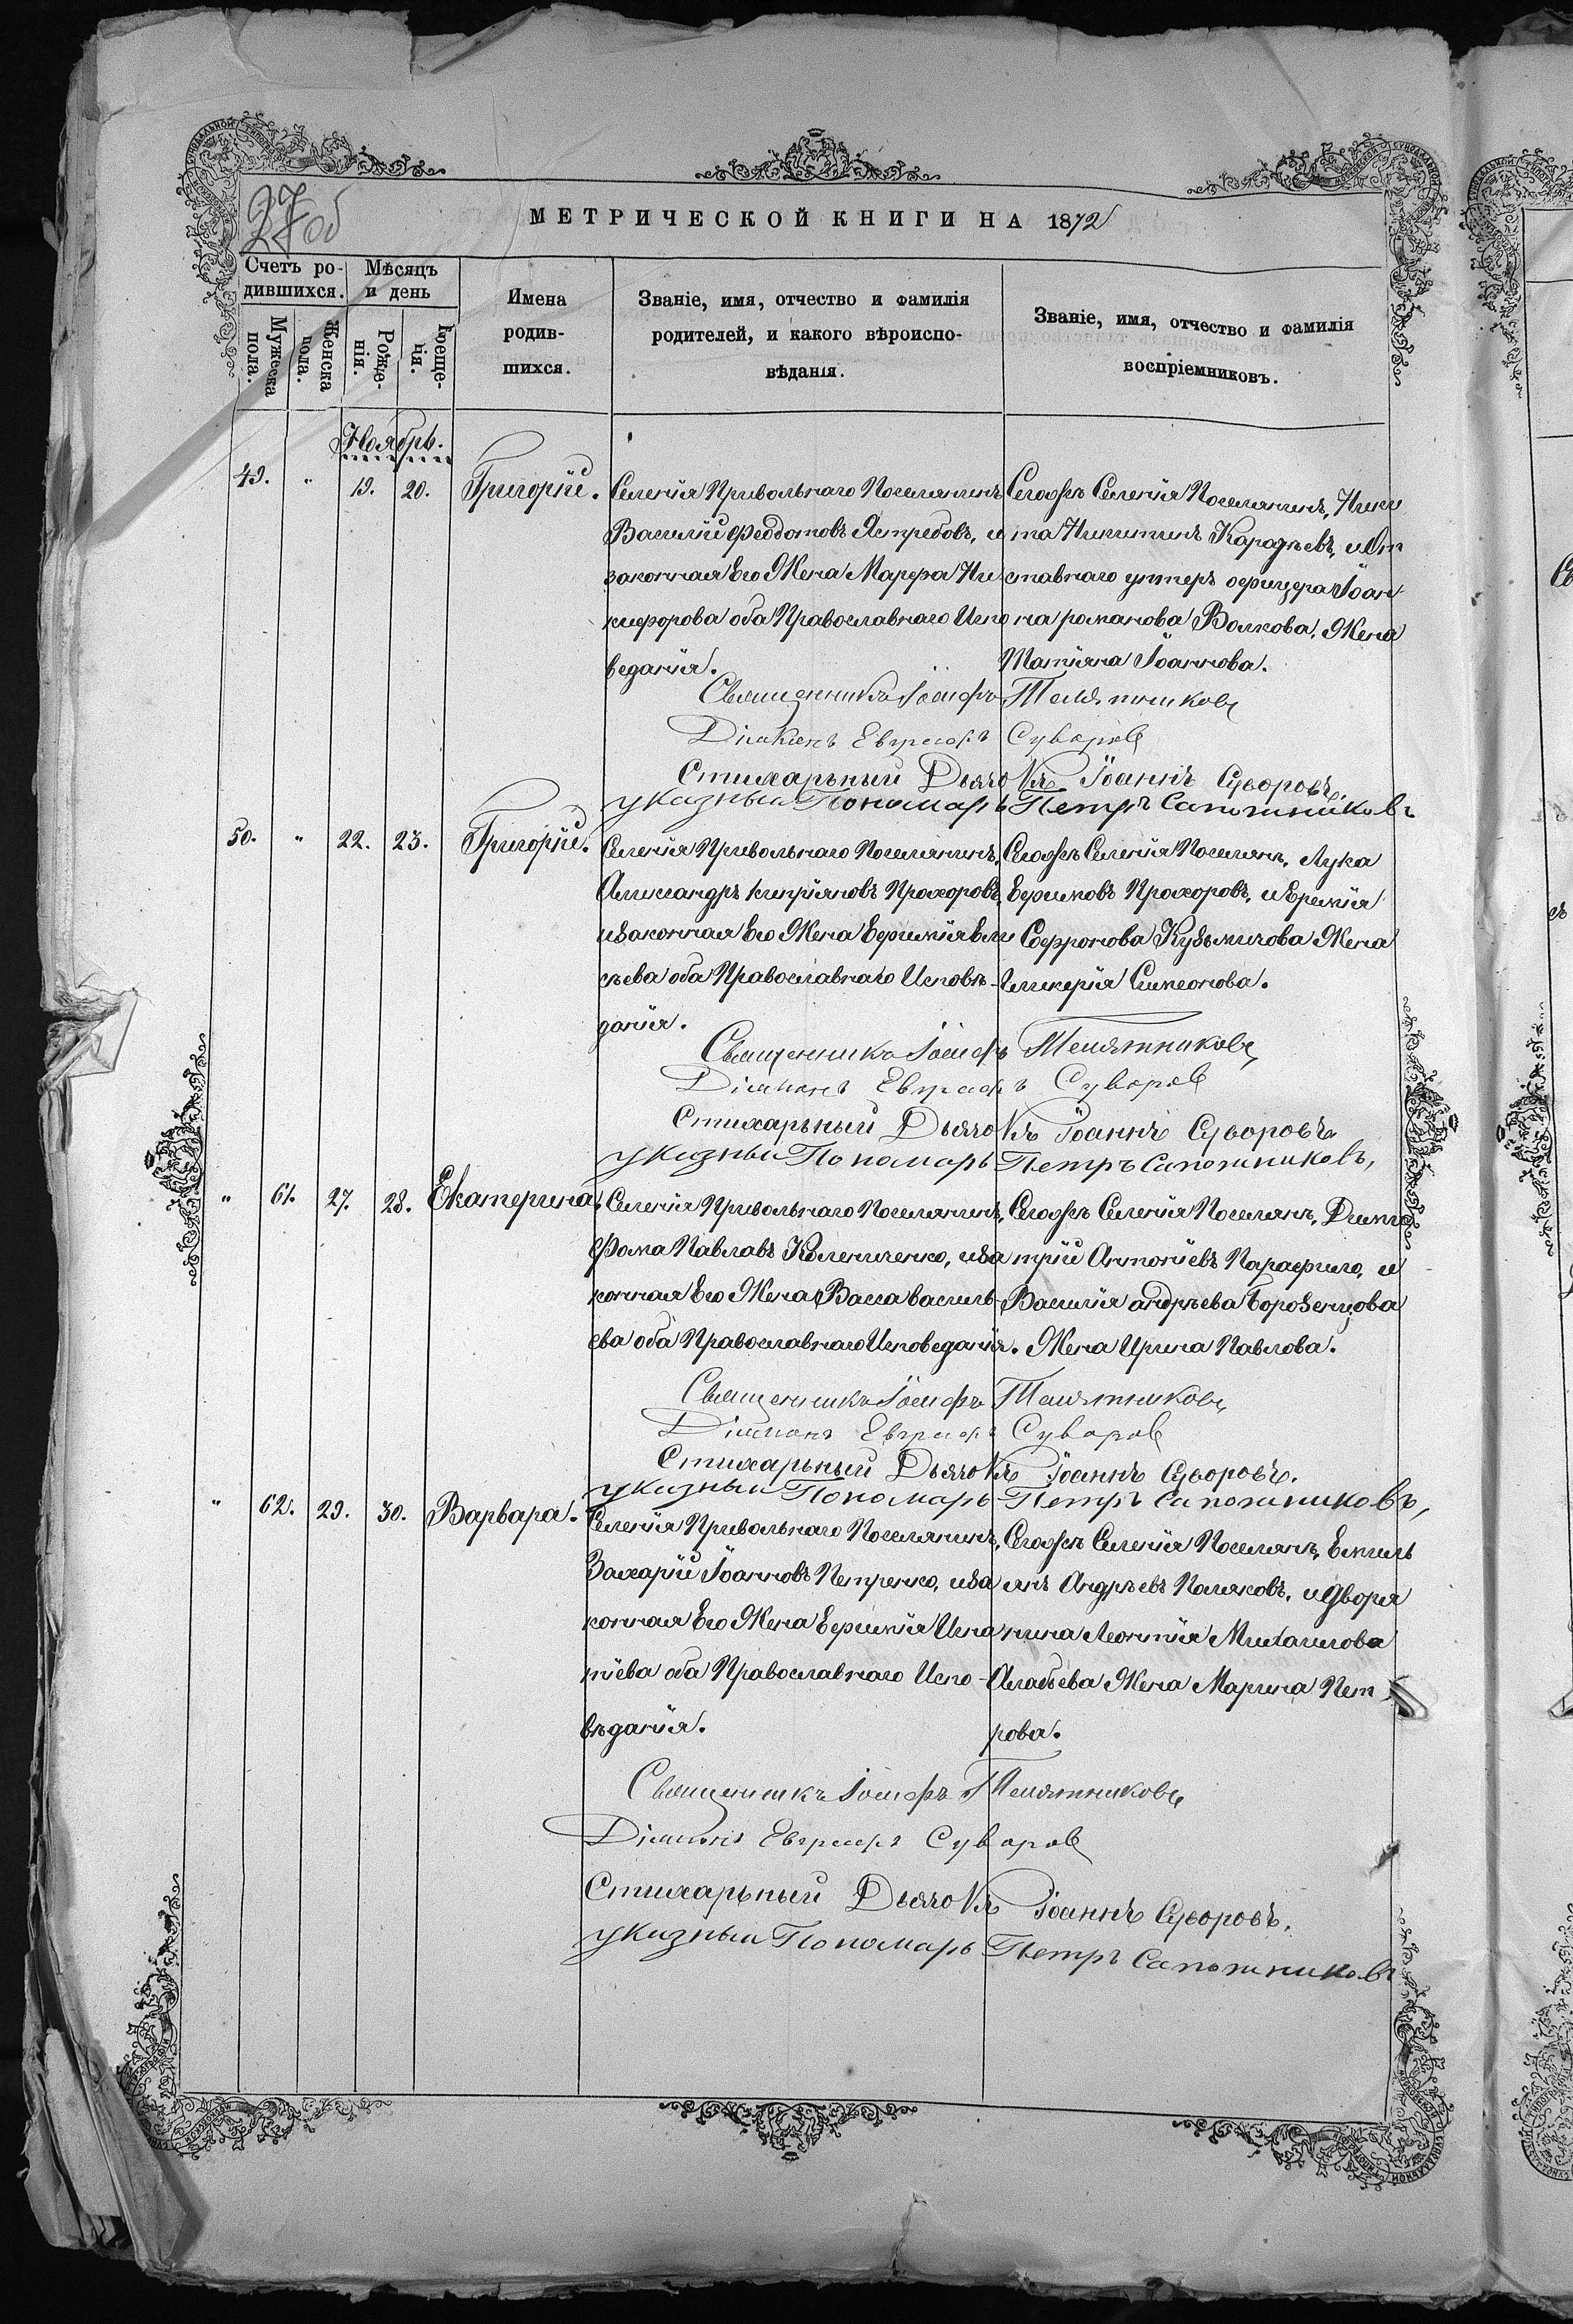 27 об
МЕТРИЧЕСКОЙ КНИГИ НА 1872
Счетъ ро-
дившихся.
Мужеска
пола.
Женска
пола.
Мѣсяцъ
и день
Рожде-
нія.
Креще-
нія.
Имена
родив-
шихся.
Званіе, имя, отчество и фамилія
родителей, и какого вѣроиспо-
вѣданія.
Званіе, имя, отчество и фамилія
воспріемниковъ.
Ноябрь.
49. " 19. 20. Григорій.
Селенія Привольнаго Поселянинъ
Василій Феодотовъ Ястребовъ, и
законная Его Жена Марфа Ни-
кифорова оба Православнаго Испо
веданія.
Сегожъ Селенія Поселянинъ, Ники
та Никитинъ Карднѣевъ, и От
ставнаго унтеръ офицера Іоан
на романова Волкова, Жена
Татіана Іоаннова.
Священникъ Іосифъ
Діаконъ Евграфъ Суворов
Стихарьный Дьячокъ Іоаннъ Суворовъ.
указный Пономарь Петръ Сапожниковъ
50. " 22. 23. Григорій.
Селенія Привольнаго Поселянинъ,
Александръ кипріяновъ Прохоровъ,
изаконная Его Жена Евфимія Ели
сѣева оба Православнаго Исповѣ-
данія.
Сегожъ Селенія Поселянъ, Лука
Ефимовъ Прохоровъ, и Ермія
Софронова Кузьмичова Жена
Гликерія Симеонова.
Священникъ Іосифъ
Діаконъ Евграфъ Суворов
Стихарьный Дьячокъ Іоаннъ Суворовъ
указный Пономарь Петръ Сапожниковъ,
" 61. 27. 28. Екатерина.
Селенія Привольнаго Поселянинъ,
Фома Павлавъ Коленченко, иза
конная Его Жена Васса василь-
ева оба Православнаго Исповеданія.
Сегожъ Селенія Поселянъ, Дими
трій Антоніевъ Парафило, и
Василія андрѣева Борозенцова
Жена Ирина Павлова.
Священникъ Іосифъ
Діаконъ Евграфъ Суворов
Стихарьный Дьячокъ Іоаннъ Суворовъ.
указный Пономарь Петръ Сапожниковъ,
" 62. 29. 30. Варвара.
Селенія Привольнаго Поселянинъ,
Захарій Іоанновъ Петренко, иза
конная Его Жена Евфимія Игна
тіева оба Православнаго Испо-
вѣданія.
Сегожъ Селенія Поселянъ, Емиль
янъ Андрѣевъ Поляковъ, и Дворя
нина Леонтія Михаилова
Жена Марина Пет
рова.
Священникъ Іосифъ
Діаконъ Евграфъ Суворов
Стихарьный Дьячокъ Іоаннъ Суворовъ.
указный Пономарь Петръ Сапожниковъ